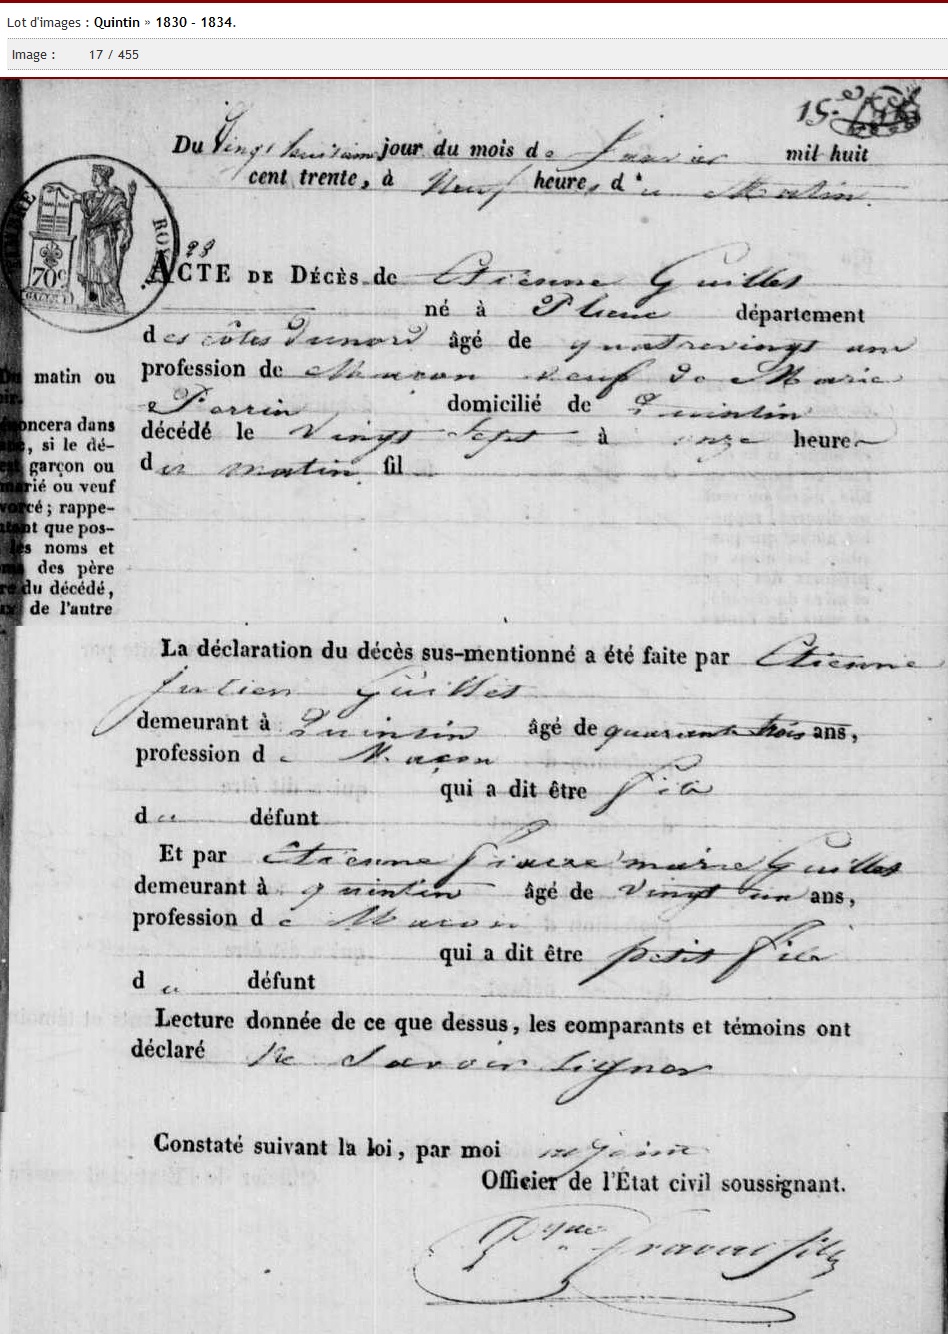 Lot d'images : Quintin » 1830 - 1834.
Image : 17 / 455
15.
Du Vingt huitieme jour du mois de Janvier mil huit
cent trente, à Neuf heures du Matin.
TIMBRE ROYAL
70c
28
ACTE DE DÉCÈS de Etienne Guillet
né à département
des côtes Dunord âgé de quatrevingt ans
profession de Macon veuf de Marie
Perrin domicilié de Quintin
décédé le Vingt Sept à onze heure
du matin fil
Du matin ou
soir.
énoncera dans
, si le dé-
est garçon ou
marié ou veuf
vorcé ; rappe-
tant que pos-
les noms et
des père
re du décédé,
de l'autre
La déclaration du décès sus-mentionné a été faite par Etienne
Julien Guillet
demeurant à Quintin âgé de quarante trois ans,
profession de Maçon
qui a dit être fils
du défunt
Et par Etienne Pierre marie Guillet
demeurant à quintin âgé de vingt un ans,
profession de Macon
qui a dit être petit fils
du défunt
Lecture donnée de ce que dessus, les comparants et témoins ont
déclaré Ne Savoir Signer
Constaté suivant la loi, par moi adjoint
Officier de l'État civil soussignant.
fils